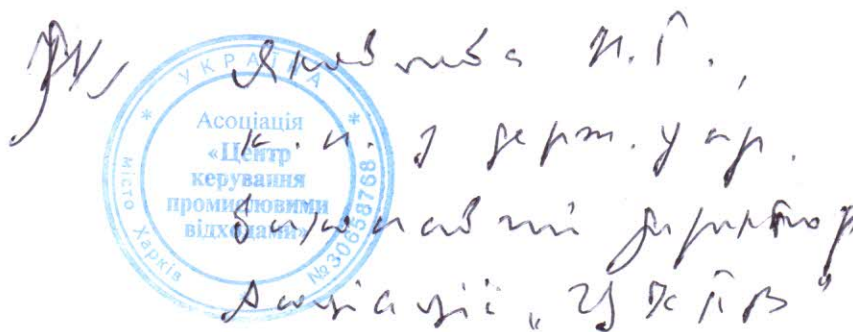 Яковлєва Н.Г.,
к.н. з держ. упр.
Виконавчий директор
Асоціації „ЦКПВ”
* УКРАЇНА *
місто Харків
№30658768
Асоціація
«Центр
керування
промисловими
відходами»